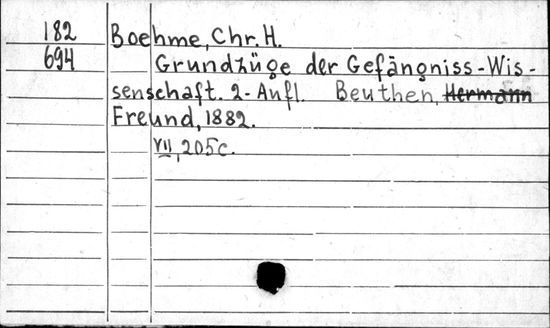 182 Boehme, Chr. H.
694 Grundzüge der Gefängniss-Wis-
senschaft. 2-Aufl. Beuthen, Hermann
Freund, 1882.
VII, 205c.